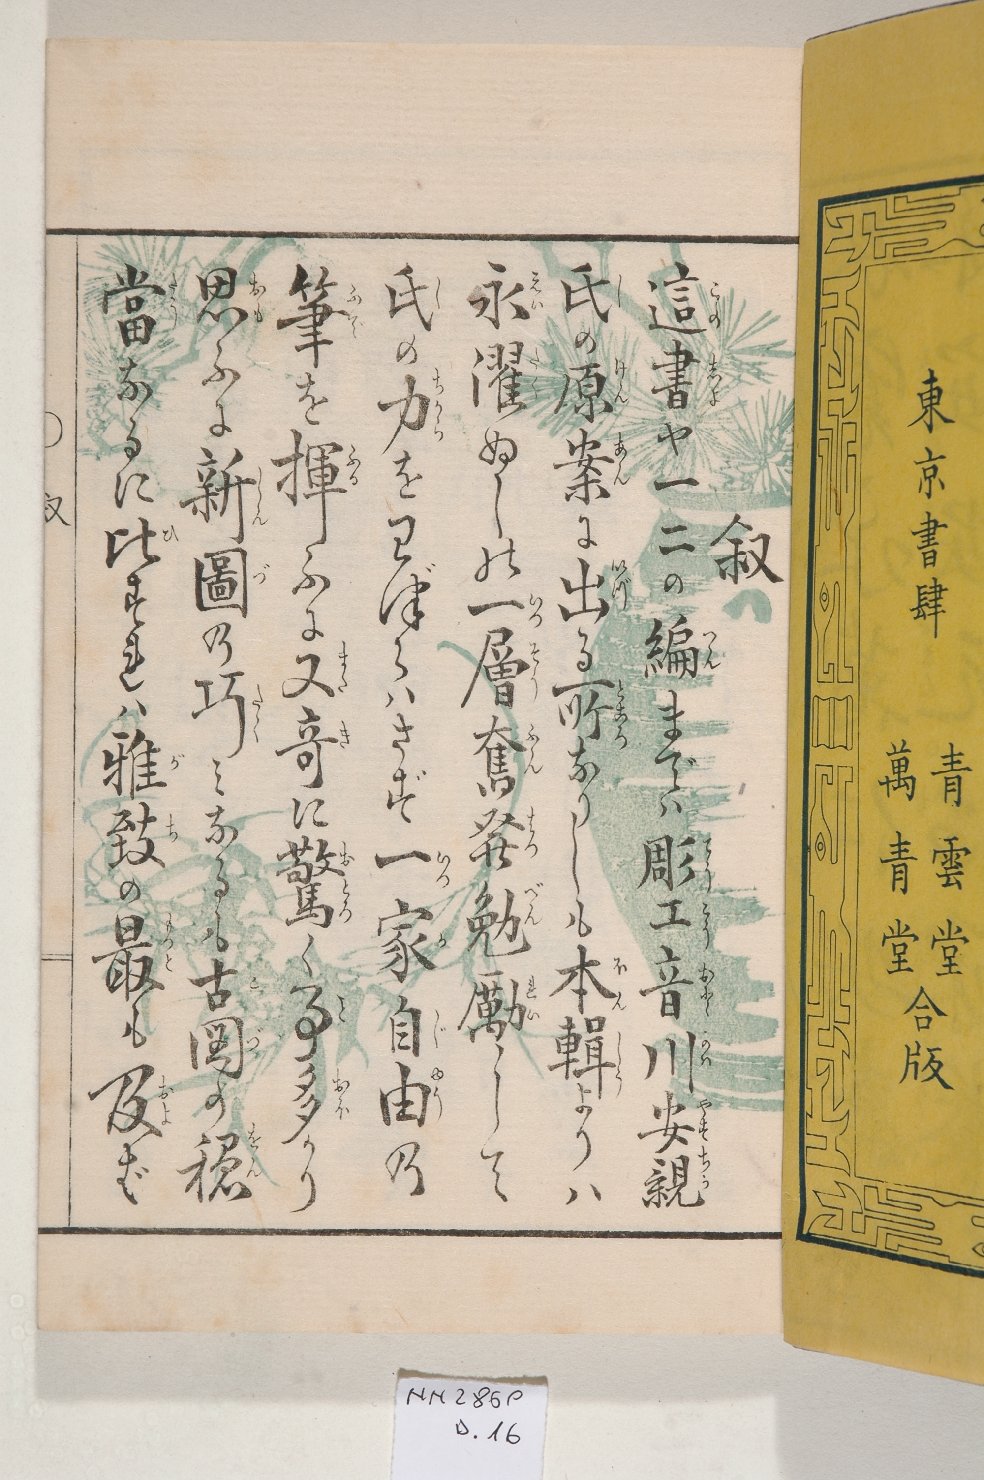 東京書肆
青雲堂
萬青堂
合版
叙
這書や一二の編までハ彫工音川安親
氏の原案に出る所なりしも本輯よりハ
永濯ぬしの一層奮発勉励して
氏の力をわづらハさず一家自由の
筆を揮ふに又奇に驚く事多かり
思ふに新圖の巧ミなるも古図の穏
當なるに比すれハ雅致の最も及ば
叙
NN286P
D.16